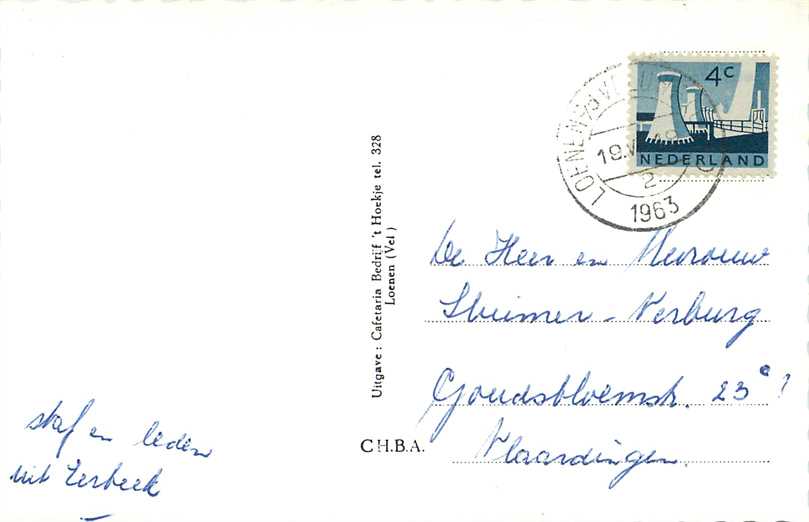 4c
NEDERLAND
LOENEN
19.V
2
1963
De Heer en Mevrouw
Sluimer - Verburg
Goudsbloemstr. 23
Vlaardingen.
Uitgave: Cafetaria Bedrijf 't Hoekje tel. 328
Loenen (Vel)
C H.B.A.
staf en leden
uit Eerbeek